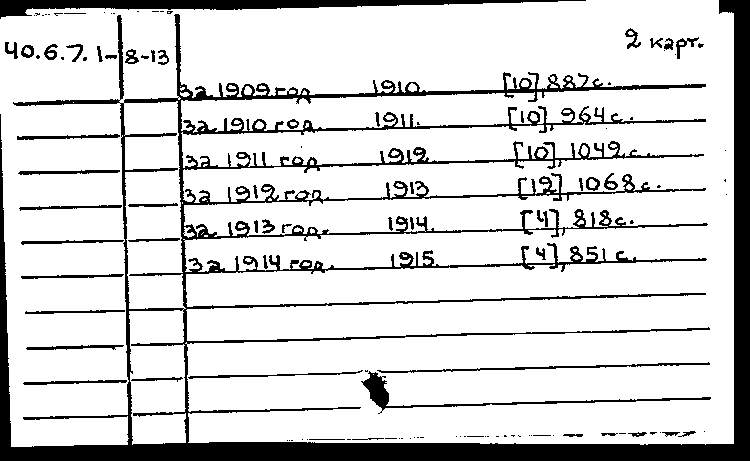 2 карт.
40.6.7.1-8-13
за 1909 год 1910. [10], 887 с.
за 1910 год. 1911. [10], 964 с.
за 1911 год 1912. [10], 1049 с.
за 1912 год. 1913 [12], 1068 с.
за 1913 год. 1914. [4], 818 с.
за 1914 год. 1915. [4], 851 с.